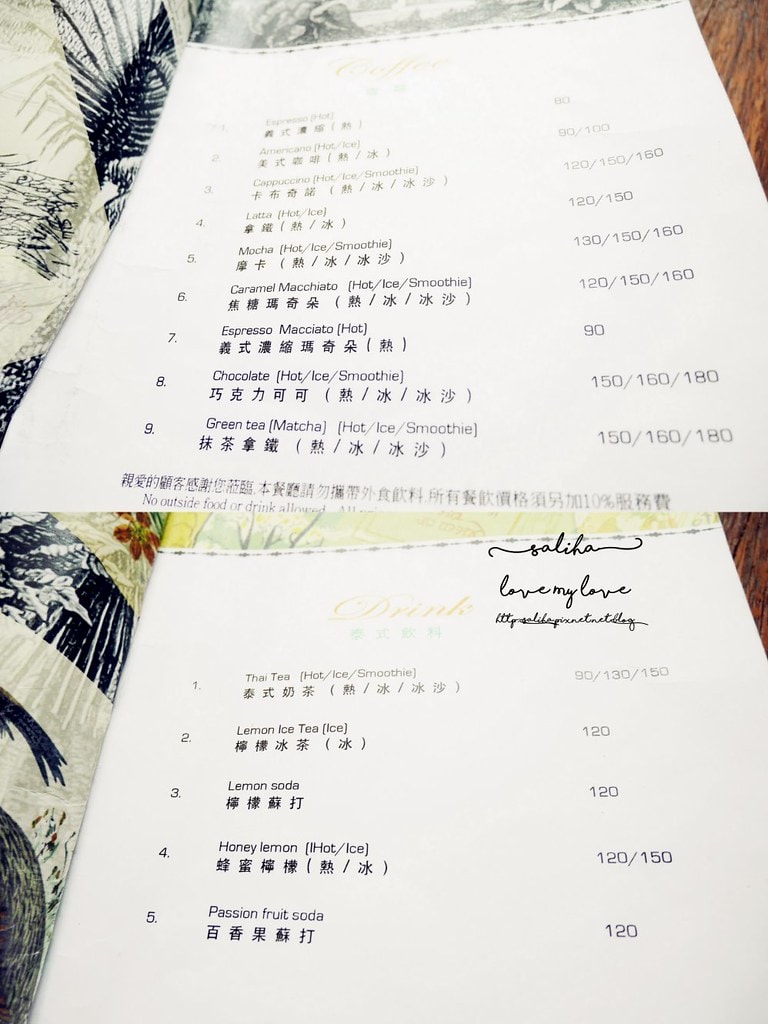 Coffee
咖啡
1. Espresso (Hot) 80
義式濃縮(熱)
2. Americano (Hot/Ice) 90/100
美式咖啡(熱/冰)
3. Cappuccino (Hot/Ice/Smoothie) 120/150/160
卡布奇諾 (熱/冰/冰沙)
4. Latta (Hot/Ice) 120/150
拿鐵(熱/冰)
5. Mocha (Hot/Ice/Smoothie) 130/150/160
摩卡 (熱/冰/冰沙)
6. Caramel Macchiato (Hot/Ice/Smoothie) 120/150/160
焦糖瑪奇朵 (熱/冰/冰沙)
7. Espresso Macciato (Hot) 90
義式濃縮瑪奇朵(熱)
8. Chocolate (Hot/Ice/Smoothie) 150/160/180
巧克力可可 (熱/冰/冰沙)
9. Green tea (Matcha) (Hot/Ice/Smoothie) 150/160/180
抹茶拿鐵 (熱/冰/冰沙)
親愛的顧客感謝您蒞臨,本餐廳請勿攜帶外食飲料,所有餐飲價格須另加10%服務費
No outside food or drink allowed. All
saliha
love my love
http:saliha.pixnet.net.blog
Drink
泰式飲料
1. Thai Tea (Hot/Ice/Smoothie) 90/130/150
泰式奶茶 (熱/冰/冰沙)
2. Lemon Ice Tea (Ice) 120
檸檬冰茶 (冰)
3. Lemon soda 120
檸檬蘇打
4. Honey lemon (IHot/Ice) 120/150
蜂蜜檸檬(熱/冰)
5. Passion fruit soda 120
百香果蘇打